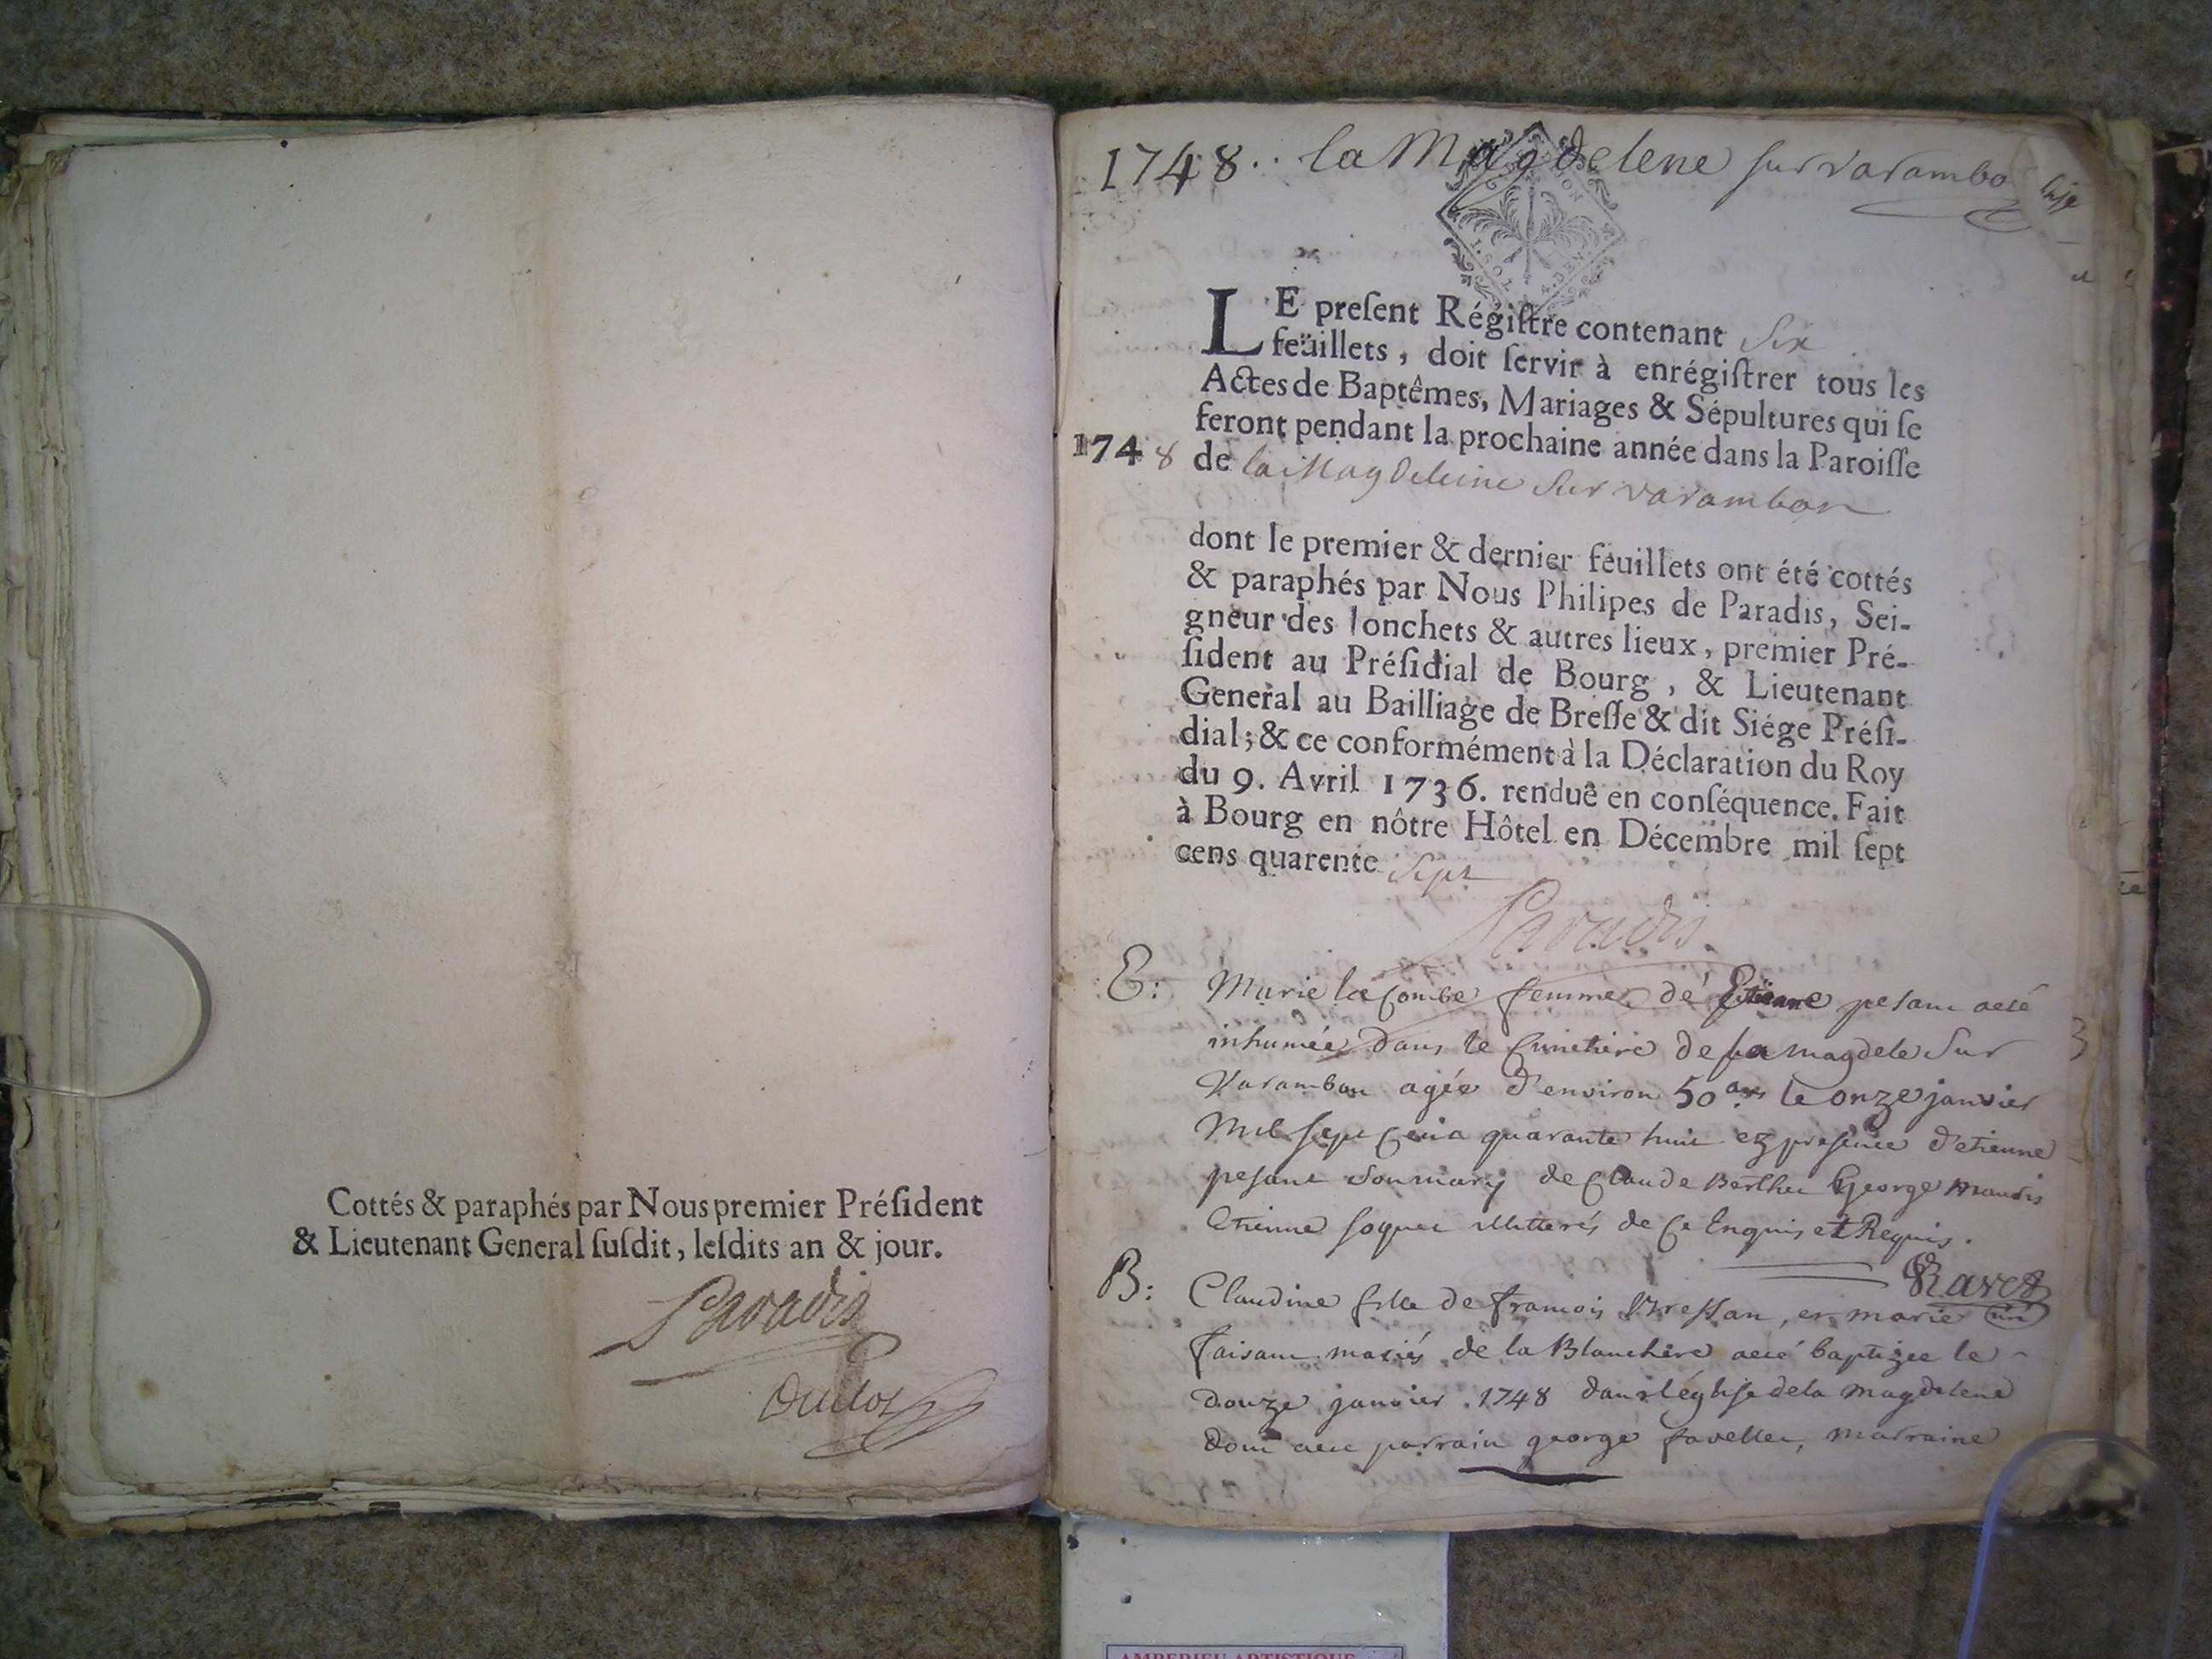 Cottés & paraphés par Nous premier Préſident
& Lieutenant General ſuſdit, leſdits an & jour.
Paradis
1748.. la Magdelene sur varambo
LE preſent Régiſtre contenant Six
feüillets, doit ſervir à enrégiſtrer tous les
Actes de Baptêmes, Mariages & Sépultures qui ſe
feront pendant la prochaine année dans la Paroiſſe
1748 de la Magdeleine Sur varambon
dont le premier & dernier feuillets ont été cottés
& paraphés par Nous Philipes de Paradis, Sei-
gneur des Ionchets & autres lieux, premier Pré-
ſident au Préſidial de Bourg, & Lieutenant
General au Bailliage de Breſſe & dit Siége Préſi-
dial; & ce conformément à la Déclaration du Roy
du 9. Avril 1736. renduë en conſéquence. Fait
à Bourg en nôtre Hôtel en Décembre mil ſept
cens quarente Sept
Paradis
E: Marie la Combe femme de Etienne pesant aeté
inhumée dans le Cimetiere de la magdele Sur
Varambon agée d'environ 50 ans le onze janvier
Mil sept Cent quarante huit ez presence d'etienne
pesant Son mary de Claude Berthet George
Etienne illitterés de Ce Enquis et Requis.
Ravet
B: Claudine fille de francois Bressan, et marie
faisant mariés de la Blanchere aeté baptizée le
douze janvier 1748 dans l'église dela magdelene
dont aeté parrain george favellet, marraine
AMBERIEU ARTISTIQUE